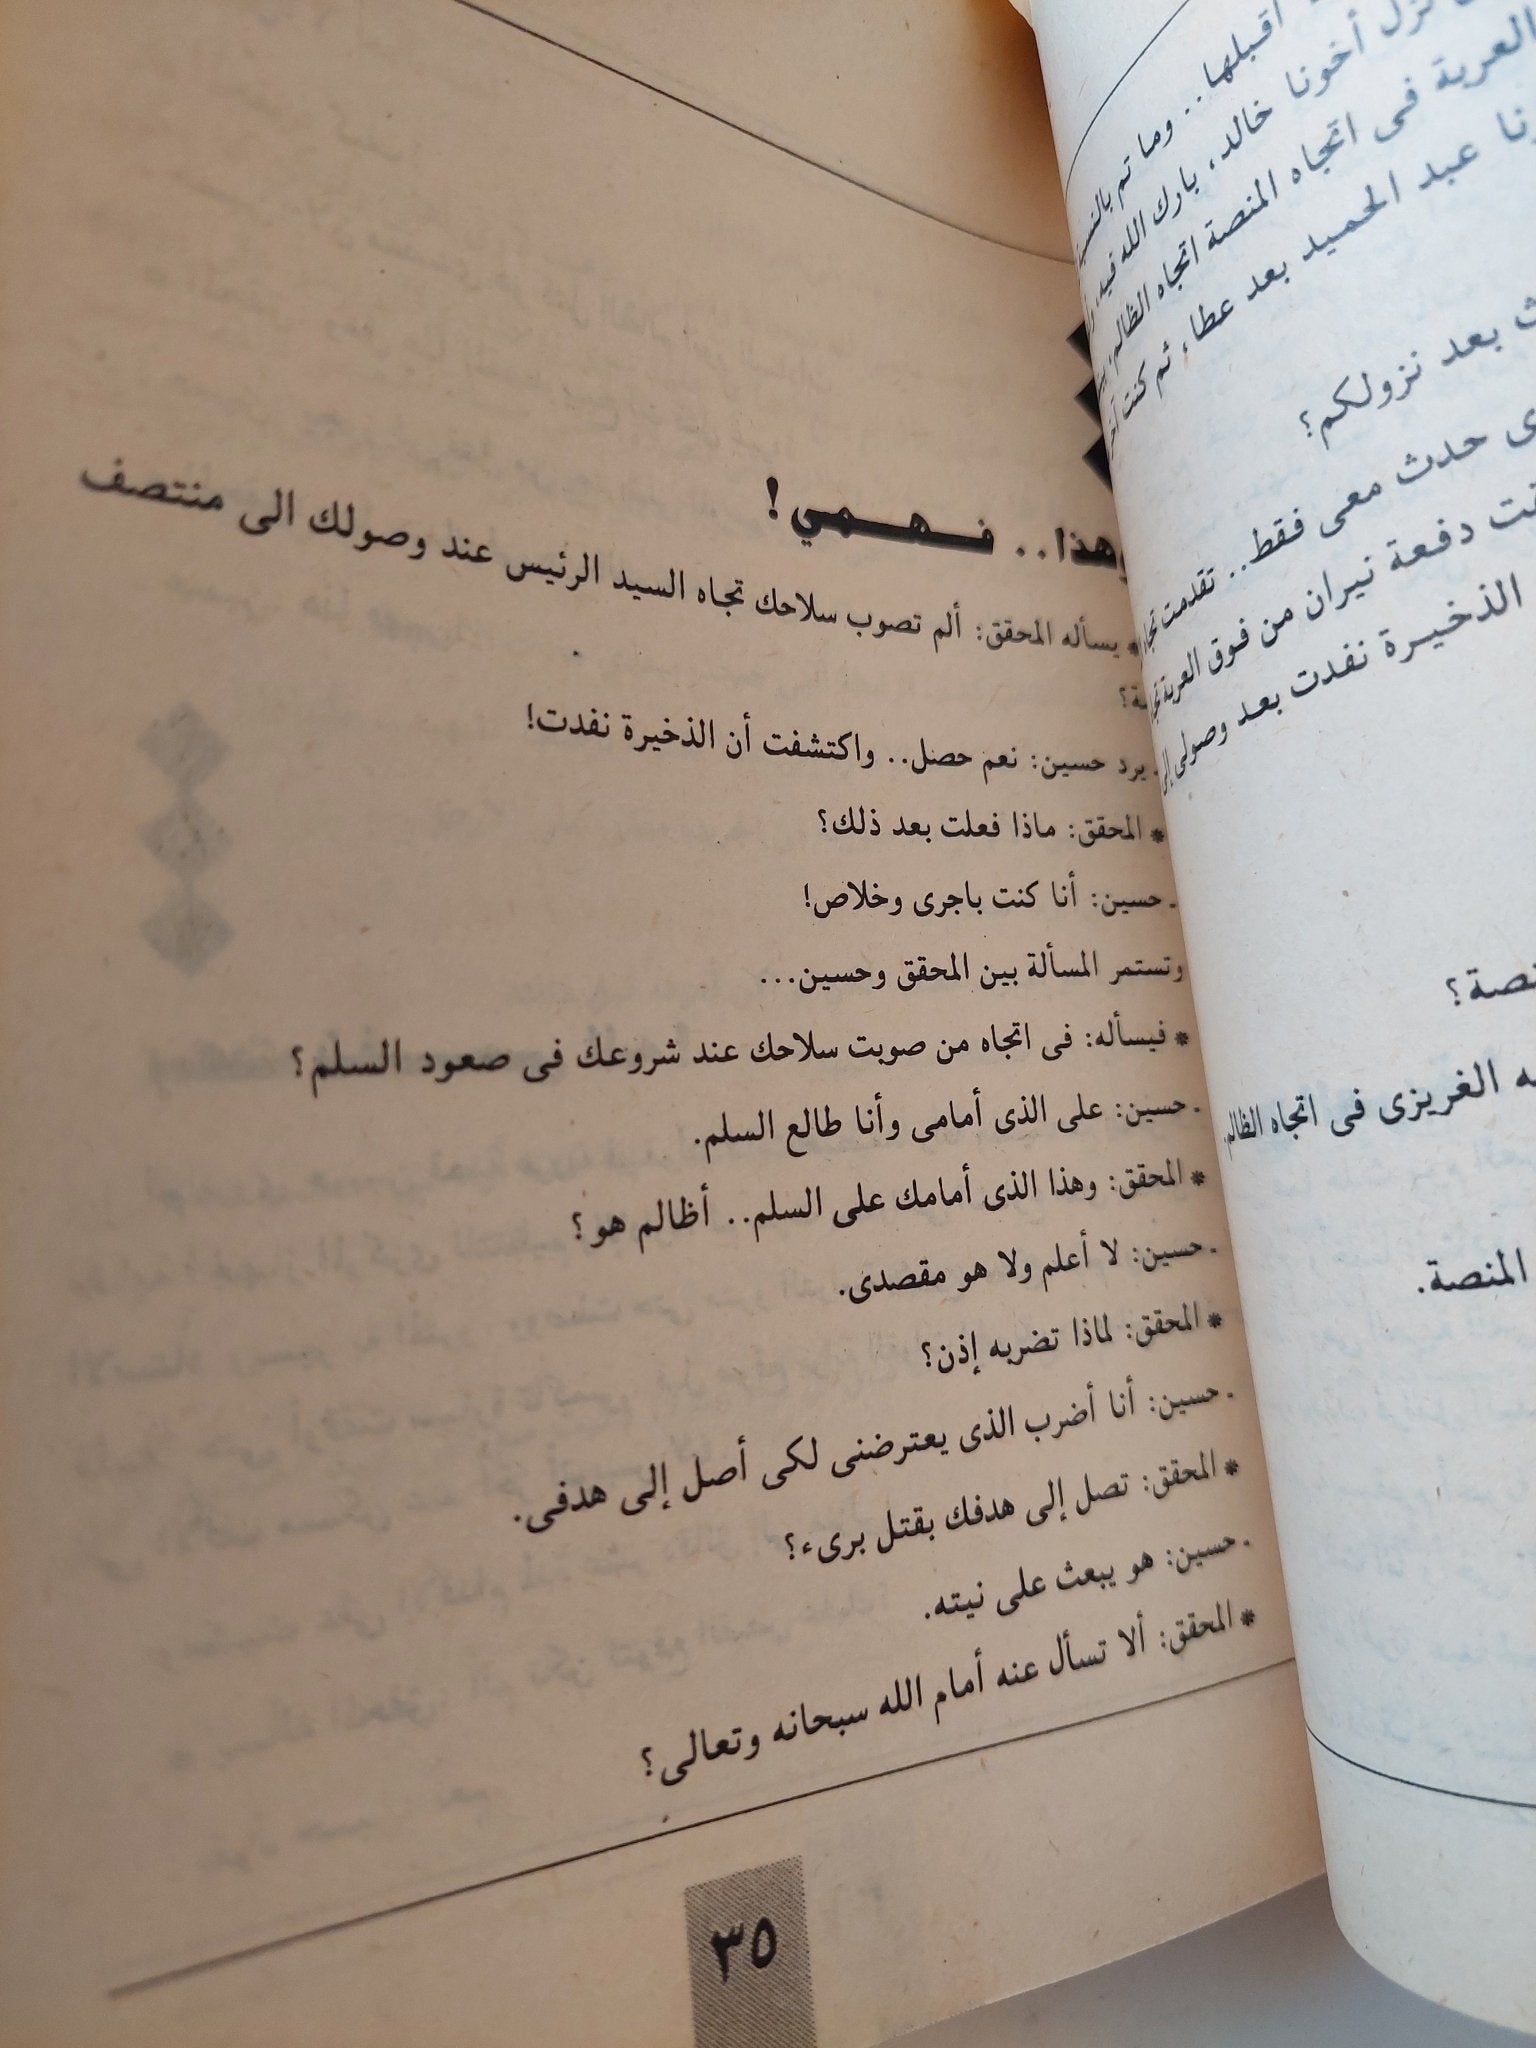 أقبلها.. وما تم بالنسبة
نزل أخونا خالد، بارك الله فيه،
العربة فى اتجاه المنصة اتجاه الظالم،
عبد الحميد بعد عطا، ثم كنت
بعد نزولكم؟
حدث معى فقط.. تقدمت
دفعة نيران من فوق العربة
الذخيرة نفدت بعد وصولى
الغريزى فى اتجاه الظالم.
المنصة.
وهذا.. فهمي!
* يسأله المحقق: ألم تصوب سلاحك تجاه السيد الرئيس عند وصولك الى منتصف
ـ يرد حسين: نعم حصل.. واكتشفت أن الذخيرة نفدت!
* المحقق: ماذا فعلت بعد ذلك؟
ـ حسين: أنا كنت باجرى وخلاص!
وتستمر المسألة بين المحقق وحسين...
* فيسأله: فى اتجاه من صوبت سلاحك عند شروعك فى صعود السلم؟
ـ حسين: على الذى أمامى وأنا طالع السلم.
* المحقق: وهذا الذى أمامك على السلم.. أظالم هو؟
ـ حسين: لا أعلم ولا هو مقصدى.
* المحقق: لماذا تضربه إذن؟
ـ حسين: أنا أضرب الذى يعترضنى لكى أصل إلى هدفى.
* المحقق: تصل إلى هدفك بقتل برىء؟
ـ حسين: هو يبعث على نيته.
* المحقق: ألا تسأل عنه أمام الله سبحانه وتعالى؟
٣٥